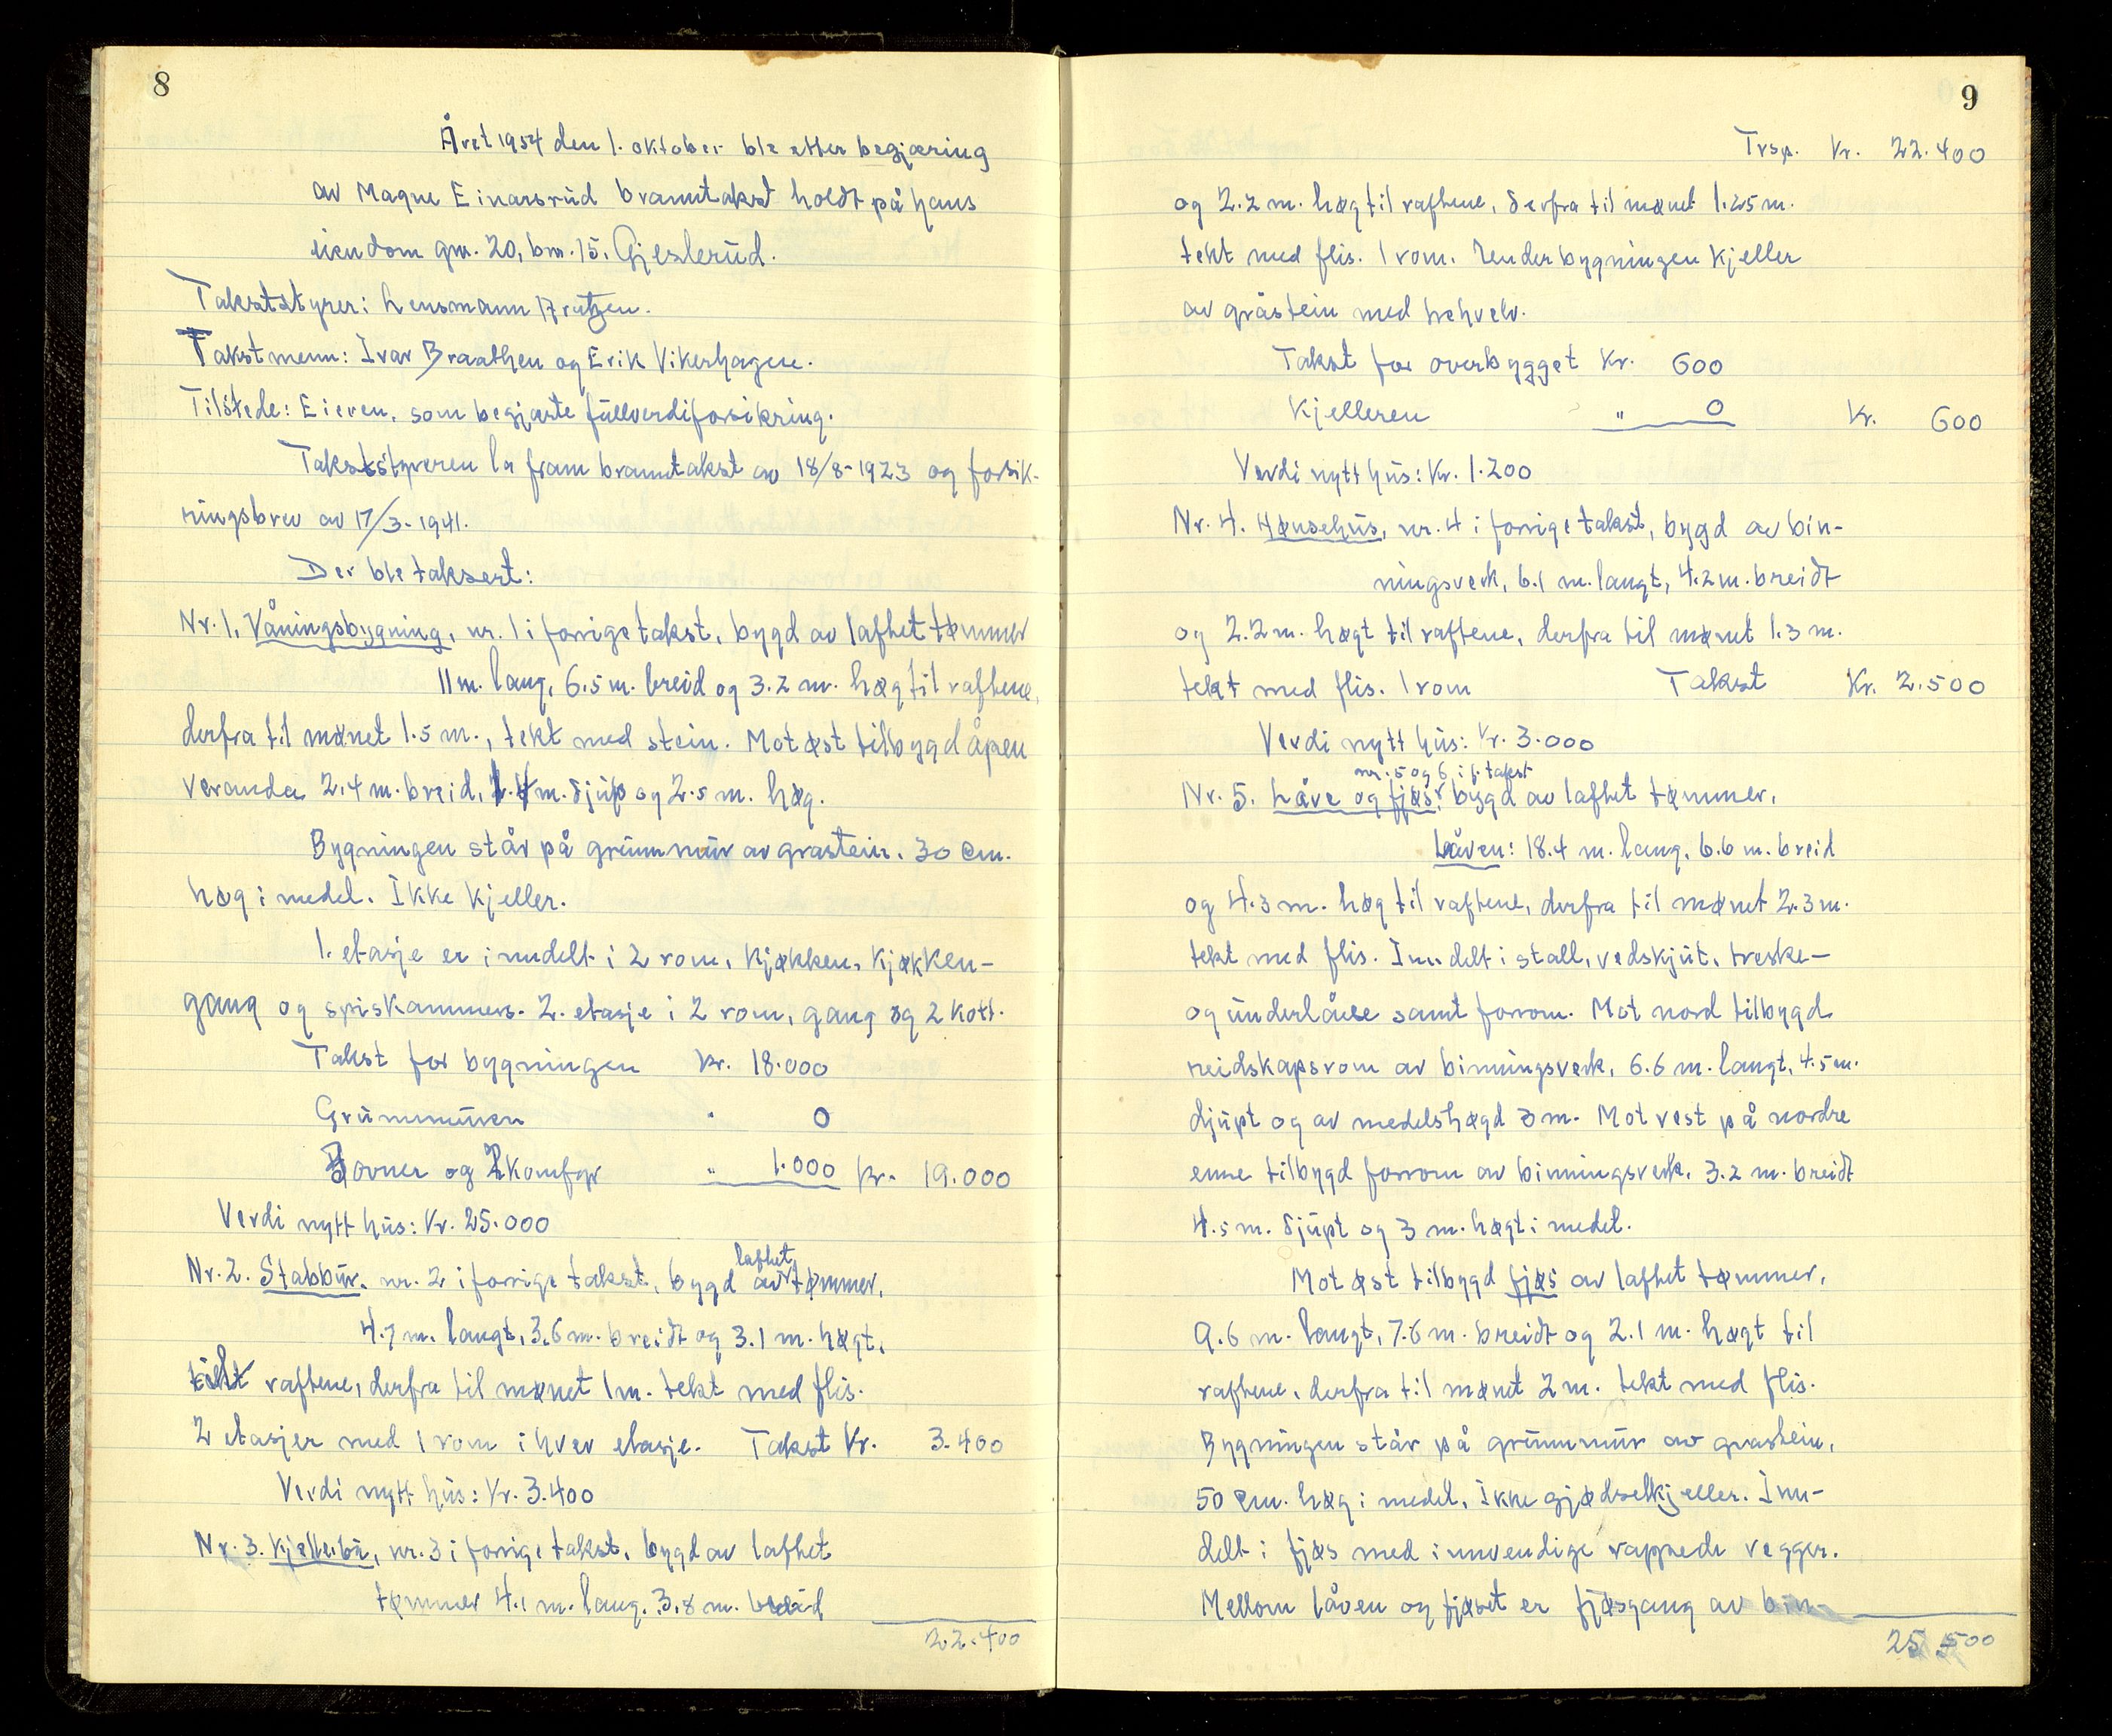 8
Året 1954 den 1. oktober ble etter begjæring
av Magne Einarsrud branntakst holdt på hans
eiendom gnr. 20, bnr. 15, Gjeslerud.
Takststyrer: Lensmann
Takstmenn: Ivar Braathen og Erik Vikerhagen.
Tilstede: Eieren, som begjærte fullverdiforsikring.
Takststyreren la fram branntakst av 18/8-1923 og forsik-
ringsbrev av 17/3-1941.
Der ble taksert:
Nr. 1. Våningsbygning, nr. 1 i forrige takst, bygd av lafhet tømmer
11 m. lang, 6.5 m. breid og 3.2 m. høg til raftene,
derfra til mønet 1.5 m., tekt med stein. Mot øst tilbygd åpen
veranda 2.4 m. breid, m. djup og 2.5 m. høg.
Bygningen står på grunnmur av grastein, 30 cm.
høg i medel. Ikke kjeller.
1. etasje er inndelt i 2 rom, kjøkken, kjøkken-
gang og spiskammers. 2. etasje i 2 rom, gang og 2 kott.
Takst for bygningen kr. 18.000
Grunnmuren " 0
ovner og komfyr " 1.000 kr. 19.000
Verdi nytt hus: Kr. 25.000
Nr. 2. Stabbur, nr. 2 i forrige takst, bygd av lafhet tømmer,
4.7 m. langt, 3.6 m. breidt og 3.1 m. høgt,
til raftene, derfra til mønet 1 m. tekt med flis.
2 etasjer med 1 rom i hver etasje. Takst Kr. 3.400
Verdi nytt hus: Kr. 3.400
Nr. 3. Kjellerbu, nr. 3 i forrige takst, bygd av lafhet
tømmer 4.1 m. lang, 3.8 m. breid
22.400
9
Trsp. Kr. 22.400
og 2.2 m. høg til raftene, derfra til mønet 1.25 m.
tekt med flis. 1 rom. Under bygningen kjeller
av gråstein med trehvelv.
Takst for overbygget Kr. 600
Kjelleren " 0 Kr. 600
Verdi nytt hus: Kr. 1.200
Nr. 4. Hønsehus, nr. 4 i forrige takst, bygd av bin-
ningsverk, 6.1 m. langt, 4.2 m. breidt
og 2.2 m. høgt til raftene, derfra til mønet 1.3 m.
tekt med flis. 1 rom Takst Kr. 2.500
Verdi nytt hus: Kr. 3.000
nr. 5 og 6 i f. takst
Nr. 5. Låve og fjøs, bygd av lafhet tømmer.
Låven: 18.4 m. lang, 6.6 m. breid
og 4.3 m. høg til raftene, derfra til mønet 2.3 m.
tekt med flis. Inndelt i stall, vedskjut, treske-
og underlåve samt forrom. Mot nord tilbygd
reidskapsrom av binningsverk, 6.6 m. langt, 4.5 m.
djupt og av medelshøgd 3 m. Mot vest på nordre
enne tilbygd forrom av binningsverk, 3.2 m. breidt
4.5 m. djupt og 3 m. høgt i medel.
Mot øst tilbygd fjøs av lafhet tømmer,
9.6 m. langt, 7.6 m. breidt og 2.1 m. høgt til
raftene, derfra til mønet 2 m. tekt med flis.
Bygningen står på grunnmur av grastein,
50 cm. høg i medel, ikke gjødselkjeller. Inn-
delt i fjøs med innvendige rappede vegger.
Mellom låven og fjøset er fjøsgang av bin-
25.500